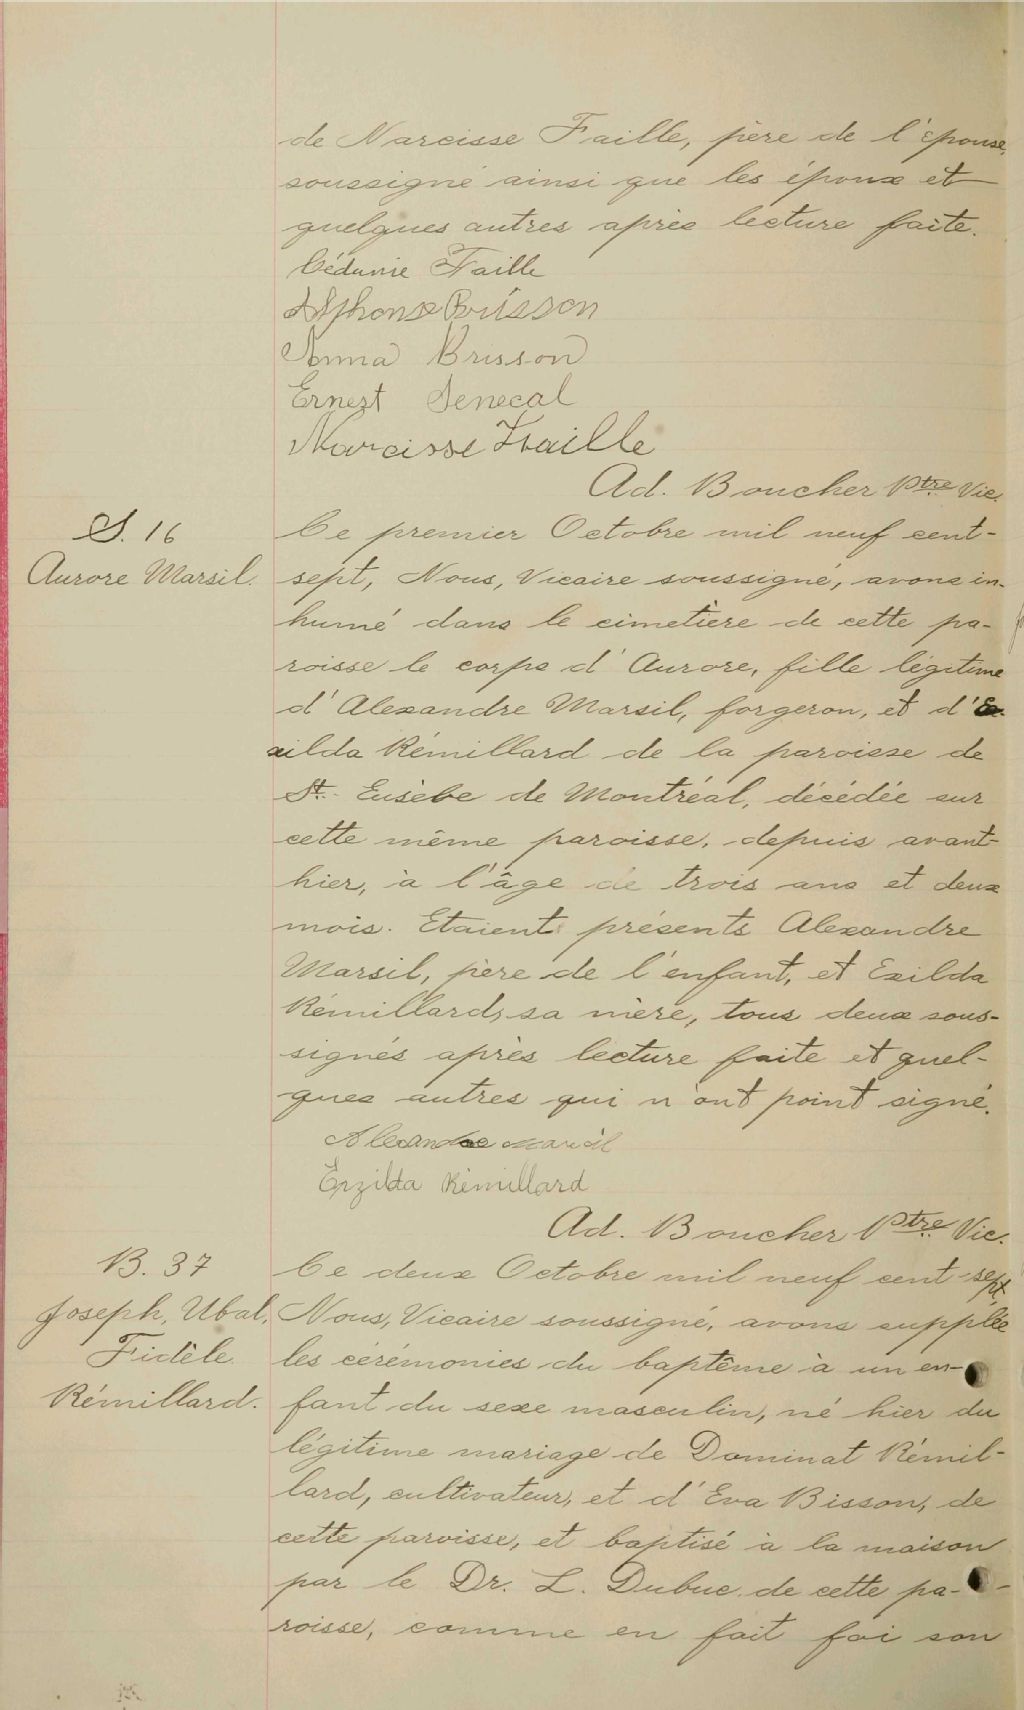 de Narcisse Faille, père de l'épouse,
soussigné ainsi que les époux et
quelques autres après lecture faite.
Cédunie Faille
Alphonse Brisson
Anna Brisson
Ernest Senecal
Narcisse Faille
Ad. Boucher Ptre Vic.
S. 16
Aurore Marsil.
Ce premier Octobre mil neuf cent-
sept, Nous, Vicaire soussigné, avons in-
humé dans le cimetière de cette pa-
roisse le corps d'Aurore, fille légitime
d'Alexandre Marsil, forgeron, et d'Ex-
xilda Rémillard de la paroisse de
St. Eusèbe de Montréal, décédée sur
cette même paroisse, depuis avant-
hier, à l'âge de trois ans et deux
mois. Etaient présents Alexandre
Marsil, père de l'enfant, et Exilda
Rémillard, sa mère, tous deux sous-
signés après lecture faite et quel-
ques autres qui n'ont point signé.
Alexandre Marsil
Erzilda Rémillard
Ad. Boucher Ptre Vic.
B. 37
Joseph, Ubal,
Fidèle
Rémillard.
Ce deux Octobre mil neuf cent-sept,
Nous, Vicaire soussigné, avons supplée
les cérémonies du baptême à un en-
fant du sexe masculin, né hier du
légitime mariage de Dominat Rémil-
lard, cultivateur, et d'Eva Bisson, de
cette paroisse, et baptisé à la maison
par le Dr. L. Dubuc de cette pa-
roisse, comme en fait foi son